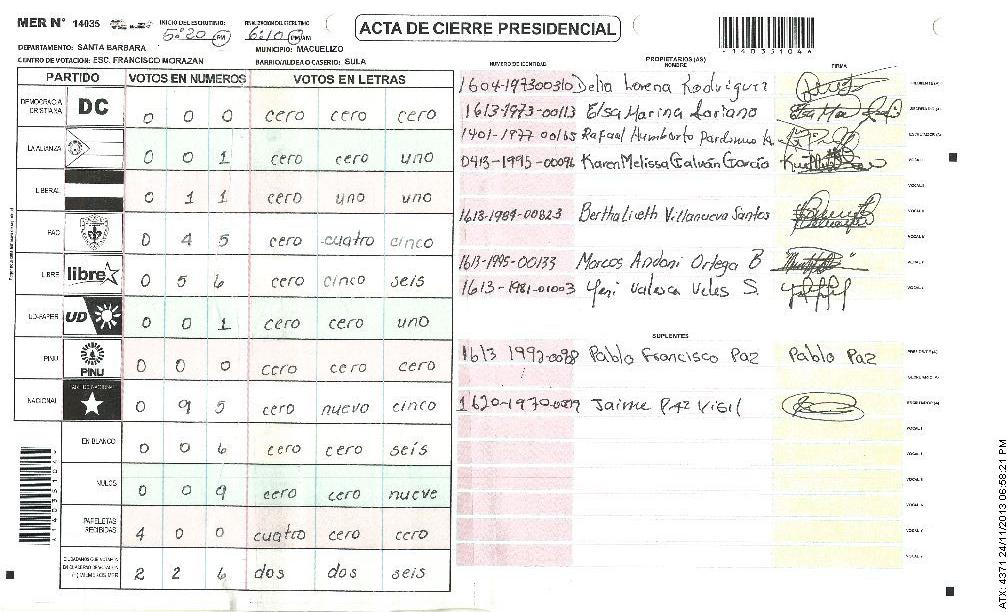 MER N° 14035
INICIO DEL ESCRUTINIO:
5:20 PM
FINALIZACION DEL ESCRUTINIO
6:10 PM/AM
ACTA DE CIERRE PRESIDENCIAL
*14035104*
DEPARTAMENTO: SANTA BARBARA
MUNICIPIO: MACUELIZO
CENTRO DE VOTACION: ESC. FRANCISCO MORAZAN
BARRIO/ALDEA O CASERIO: SULA
PARTIDO VOTOS EN NUMEROS VOTOS EN LETRAS
DEMOCRACIA CRISTIANA DC 0 0 0 cero cero cero
LA ALIANZA 0 0 1 cero cero uno
LIBERAL 0 1 1 cero uno uno
PAC 0 4 5 cero cuatro cinco
LIBRE libre 0 5 6 cero cinco seis
UD-FAPER UD 0 0 1 cero cero uno
PINU PINU 0 0 0 cero cero cero
NACIONAL 0 9 5 cero nuevo cinco
EN BLANCO 0 0 6 cero cero seis
NULOS 0 0 9 cero cero nueve
PAPELETAS RECIBIDAS 4 0 0 cuatro cero cero
CIUDADANOS QUE VOTARON EN CUADERNO DE VOTACION (+) MIEMBROS MER 2 2 6 dos dos seis
NUMERO DE IDENTIDAD
PROPIETARIOS (AS)
NOMBRE
FIRMA
1604-197300310 Delia Lorena Rodriguez PRESIDENTE (A)
1613-1973-00113 Elsa Marina Loriano SECRETARIO (A)
1401-1977 00165 Rafael Humberto Perdomo ESCRUTADOR (A)
0413-1995-00096 Karen Melissa Galván García VOCAL I
VOCAL II
1613-1984-00823 Bertha Lizeth Villanueva Santos VOCAL III
VOCAL IV
1613-1995-00133 Marcos Andoni Ortega B VOCAL V
1613-1981-01003 Yeni Valesca Veles S.
SUPLENTES
1613 1992-0098 Pablo Francisco Paz Pablo Paz PRESIDENTE (A)
SECRETARIO (A)
1620-1970-0019 Jaime Paz Vigil ESCRUTADOR (A)
VOCAL I
VOCAL II
VOCAL III
VOCAL IV
VOCAL V
ATX: 4371 24/11/2013 06:58:21 PM